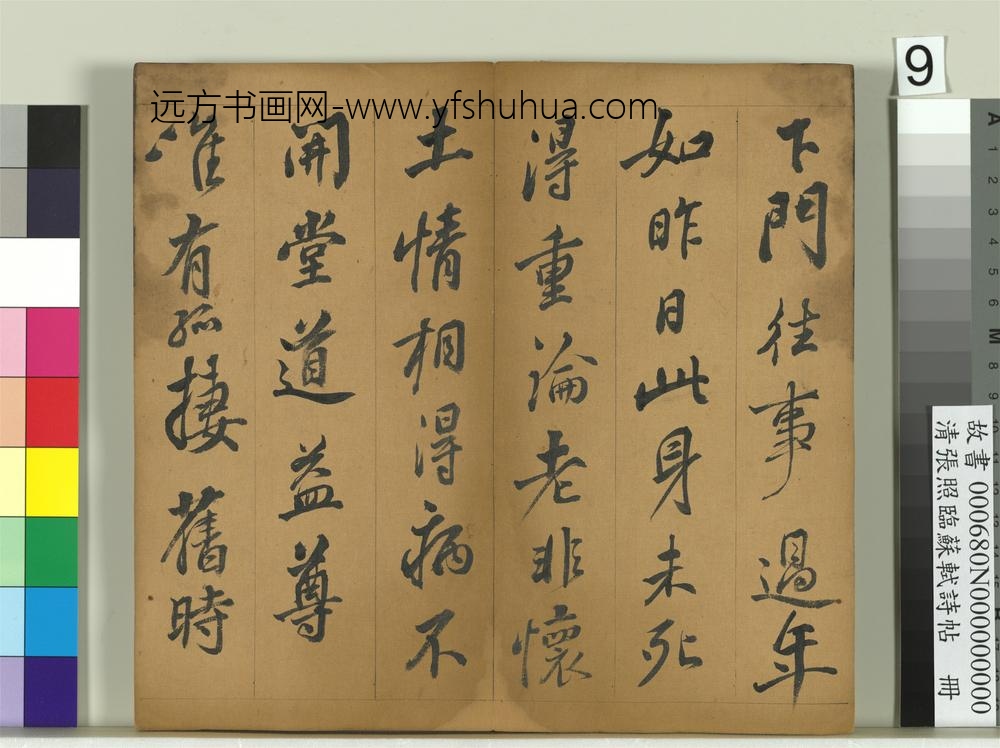 远方书画网-www.yfshuhua.com
下門往事過年
如昨日此身未死
得重論老非懷
土情相得病不
開堂道益尊
唯有孤棲舊時
9
故書000680N000000000
清張照臨蘇軾詩帖 冊
A 1 2 3 4 5 6 M 8 9